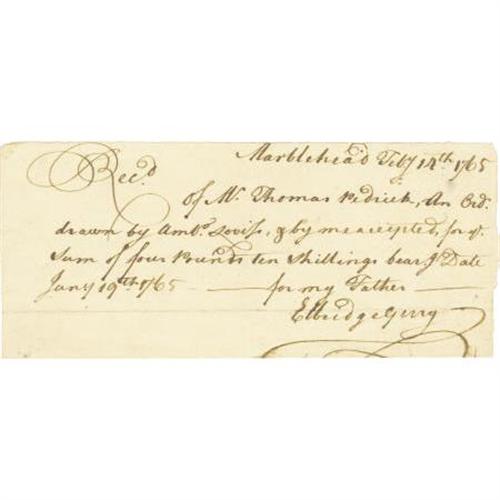 Marblehead Feby 14th 1765
Recd
of Mr Thomas Pedrick, An Ord.
drawn by Ambs. & by me accepted, for ye
Sum of four Pounds ten Shillings bear g Date
Jany 19th 1765 — for my Father —
Elbridge Gerry